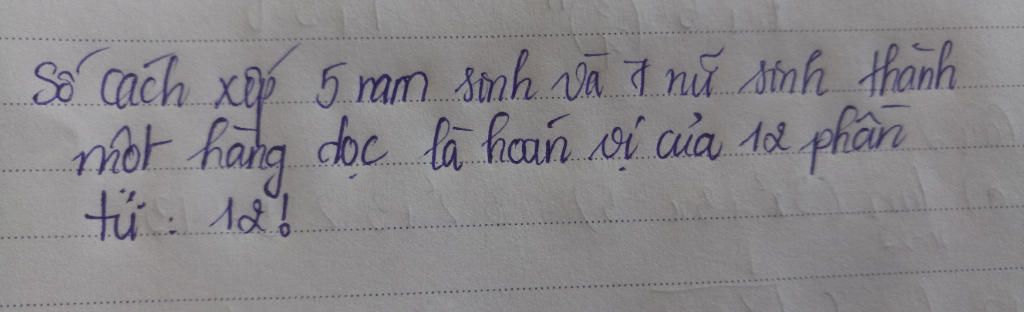 Số cách xếp 5 nam sinh và 7 nữ sinh thành
một hàng dọc là hoán vị của 12 phần
tử : 12!